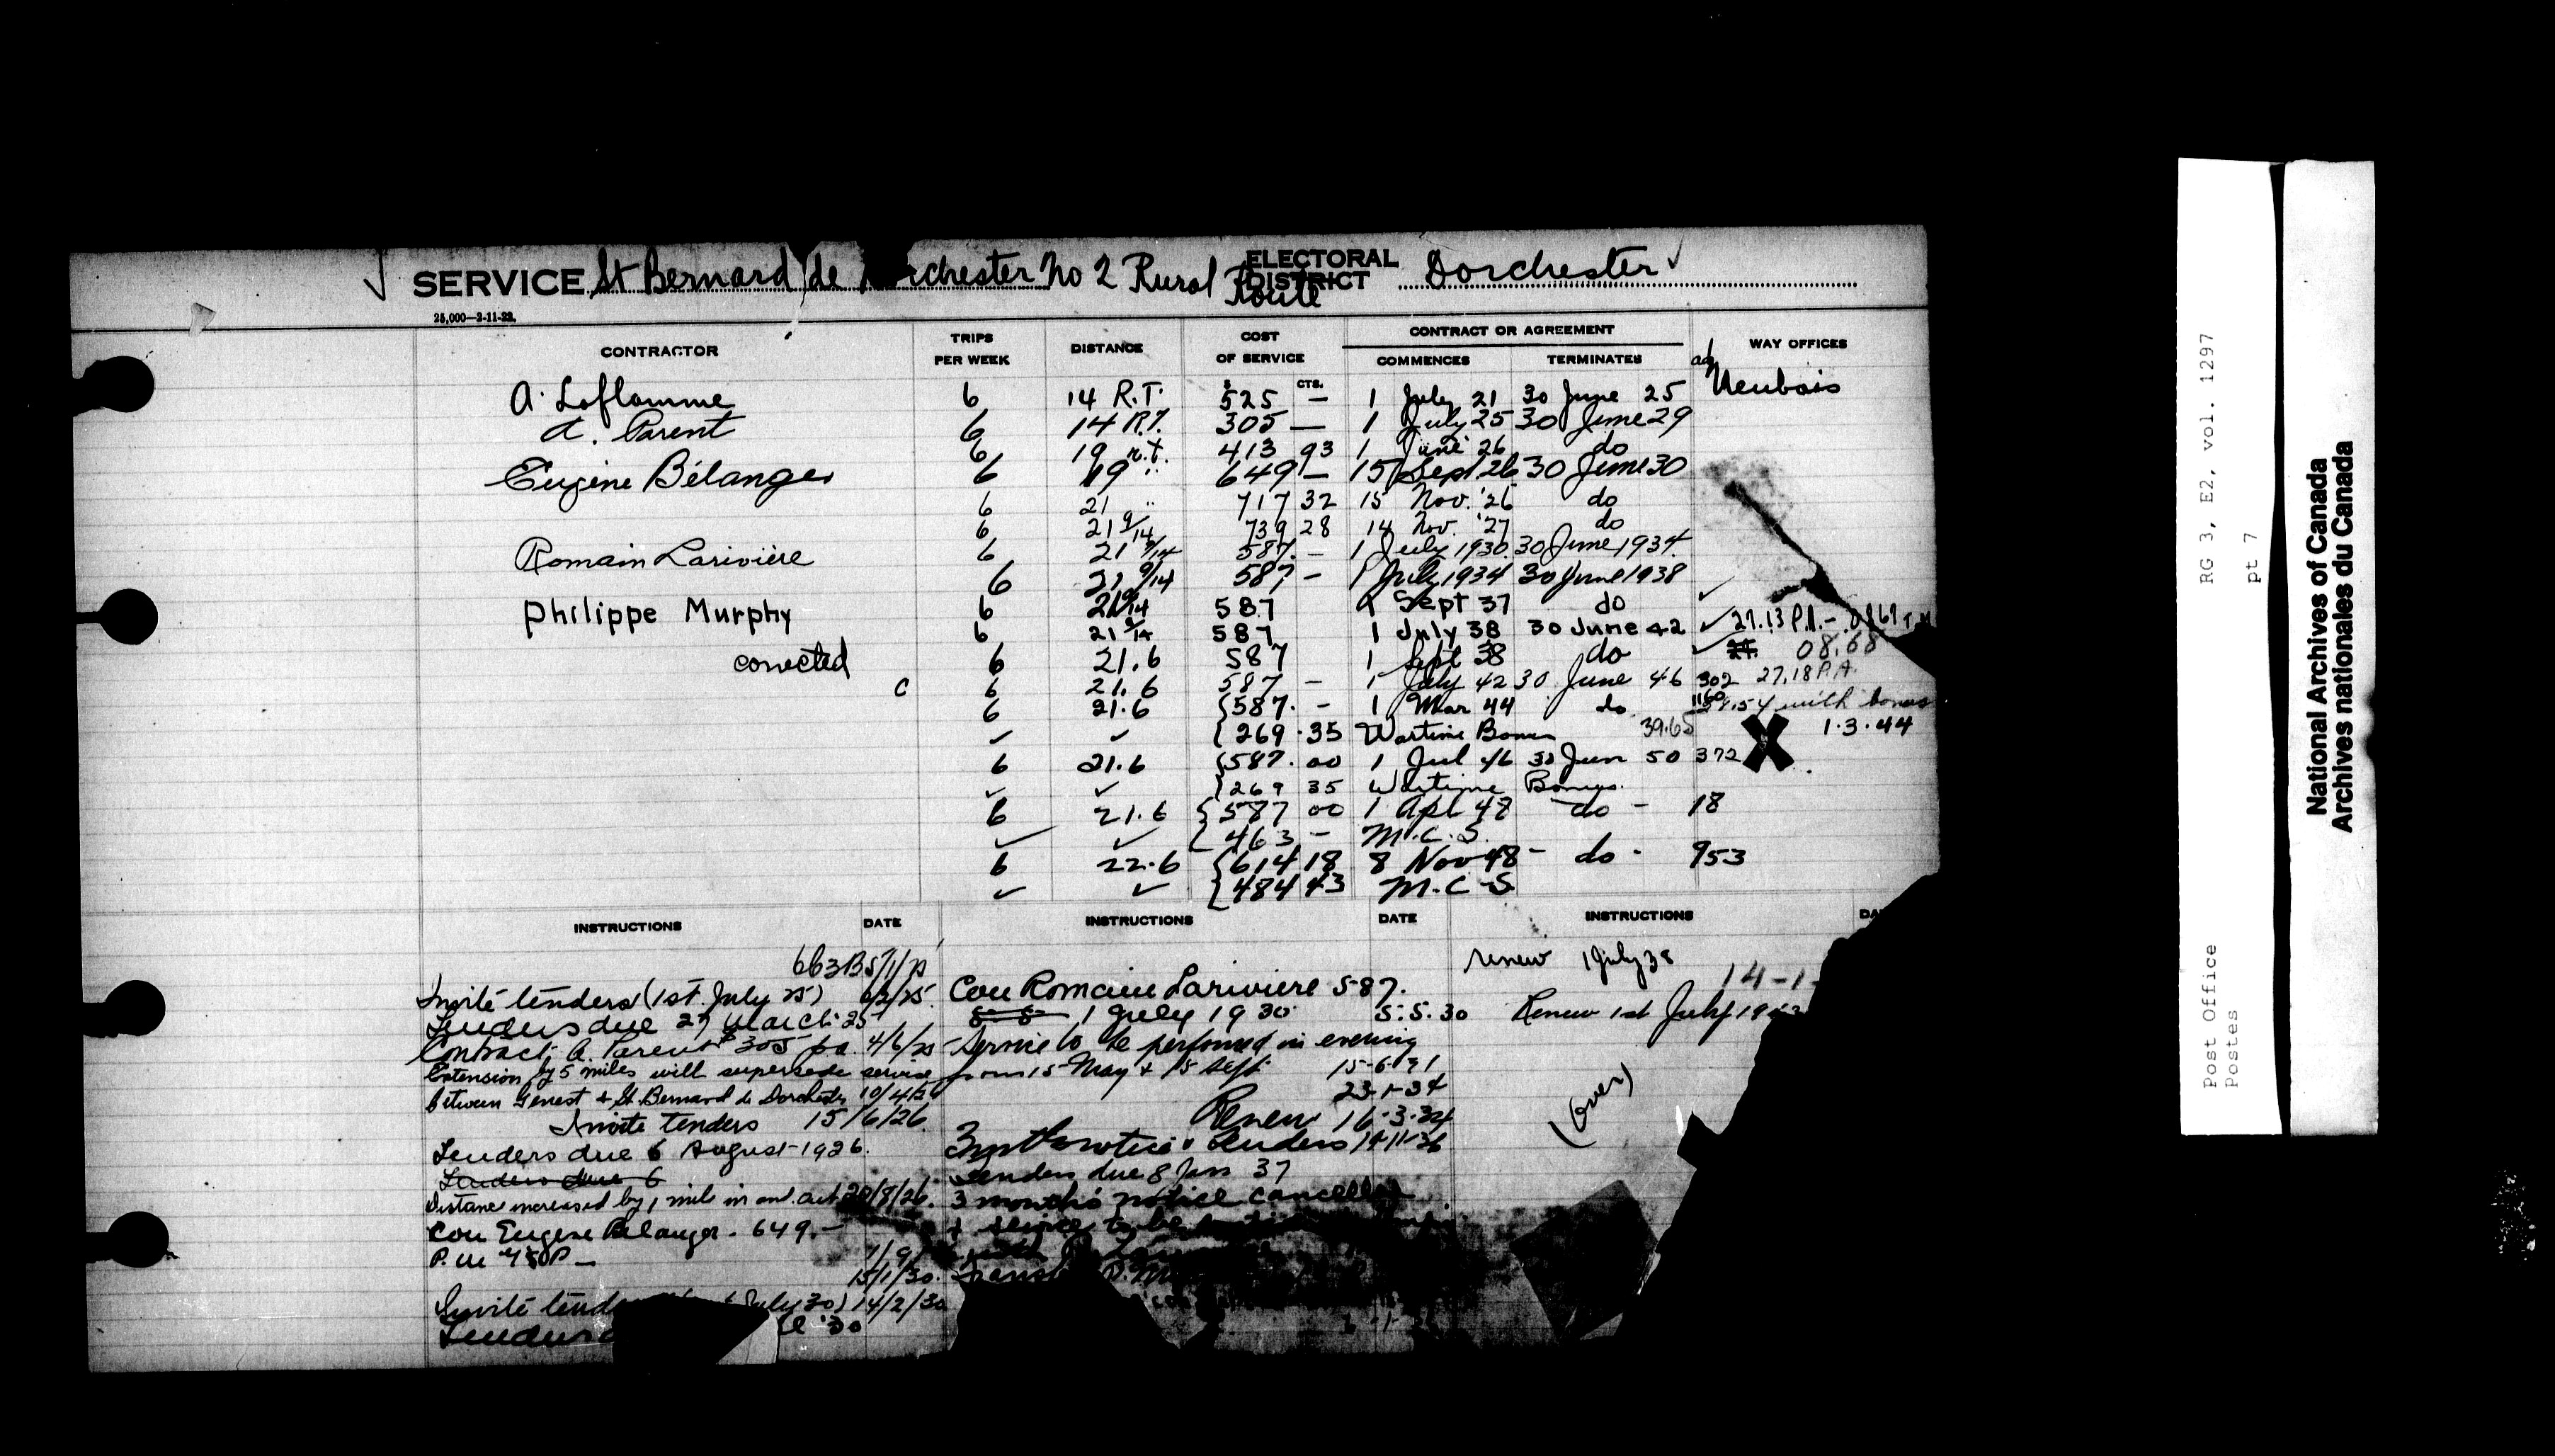 SERVICE St Bernard de rchester No 2 Rural Route ELECTORAL DISTRICT Dorchester
25,000—2-11-22.
CONTRACTOR TRIPS PER WEEK DISTANCE COST OF SERVICE CONTRACT OR AGREEMENT COMMENCES TERMINATES WAY OFFICES
$ CTS.
A. Laflamme 6 14 R.T. 525 — 1 July 21 30 June 25
A. Parent 6 14 R.T. 305 — 1 July 25 30 June 29
6 19 r.t. 413 93 1 June 26 do
Eugène Bélanger 6 19 " 649 — 15 Sept 26 30 June 30
6 21 " 717 32 15 Nov. '26 do
6 21 9/14 739 28 14 Nov. '27 do
Romain Larivière 6 21 9/14 587. – 1 July 1930 30 June 1934
6 21 9/14 587 – 1 July 1934 30 June 1938
Philippe Murphy 6 21 9/14 587 1 Sept 37 do
6 21 9/14 587 1 July 38 30 June 42
corrected 6 21.6 587 1 Sept 38 do 08.68
C 6 21.6 587 – 1 July 42 30 June 46 302 27.18 P.A.
6 21.6 587. – 1 Mar 44 do with bonus
269.35 Wartime Bonus 39.65 1.3.44
6 21.6 587.00 1 Jul 46 30 Jun 50 372 X
269 35 Wartime Bonus.
6 21.6 587 00 1 Apl 48 do – 18
463 – M.C.S.
6 22.6 614 18 8 Nov 48 – do – 953
484 43 M.C.S
INSTRUCTIONS DATE INSTRUCTIONS DATE INSTRUCTIONS DA
663B 5/1/25
Invite tenders (1st July 25)
Tenders due 27 March 25
Contract A. Parent 305 pa 4/6/25
Extension of 5 miles will supersede service
between Genest & St. Bernard de Dorchester 10/4/26
Invite tenders 15/6/26
Tenders due 6 August 1926.
Tenders due 6
Distance increased by 1 mile
Con Eugene Belanger. 649.—
15/1/30.
Invite tend July 30) 14/2/30
Tenders '30
Con Romain Lariviere 587.
1 July 1930 5.5.30
Service to be performed in evening
from 15 May + 15 Sept 15-6-31
23-1-34
Renew 16.3.34
Tenders due 8 Jan 37
3 months notice cancelled
+ service to be
renew 1 July 38
14-1-
Renew 1st July
(over)
RG 3, E2, vol. 1297
pt 7
Post Office
Postes
National Archives of Canada
Archives nationales du Canada